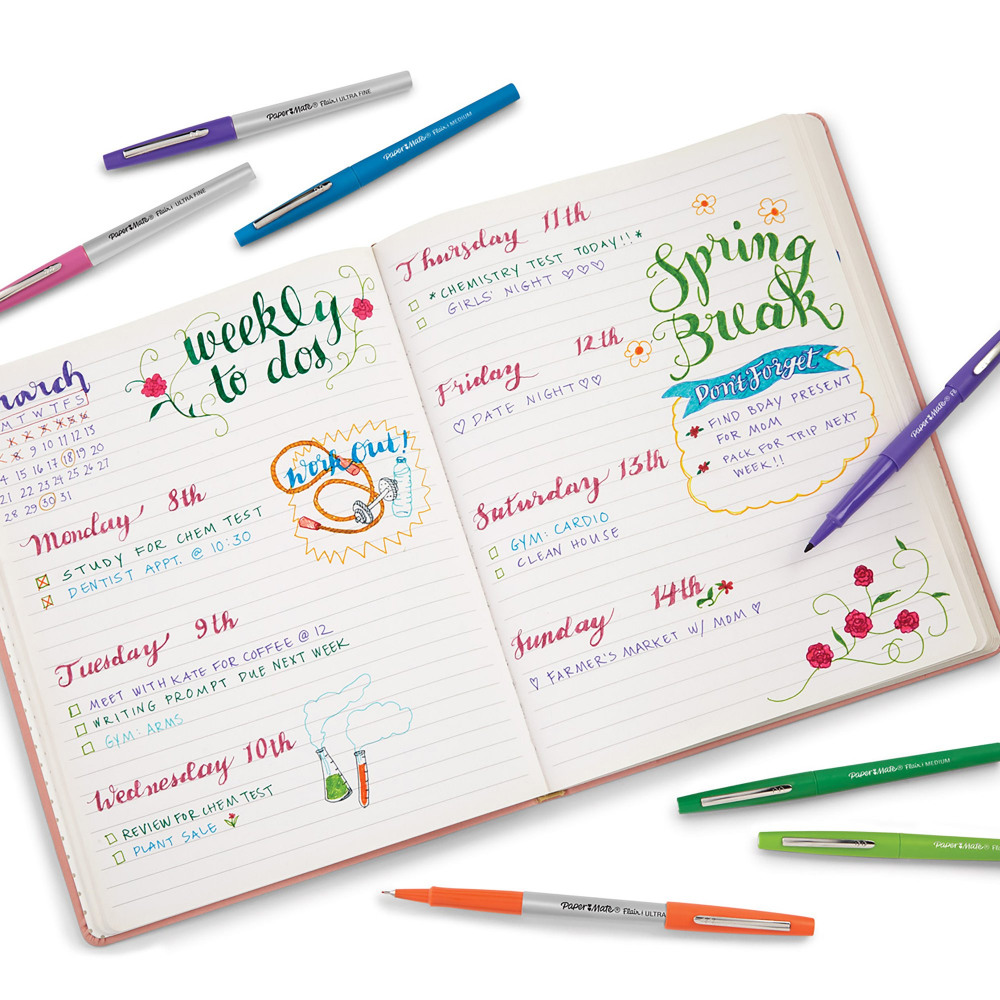 Paper Mate® Flair. ULTRA FINE
Paper Mate® Flair. MEDIUM
Paper Mate® Flair. ULTRA FINE
weekly
to dos
March
M T W T F S
9 10 11 12 13
4 15 16 17 18 19 20
21 22 23 24 25 26 27
28 29 30 31
Work Out!
Monday 8th
STUDY FOR CHEM TEST
DENTIST APPT. @ 10:30
Tuesday 9th
MEET WITH KATE FOR COFFEE @ 12
WRITING PROMPT DUE NEXT WEEK
GYM: ARMS
Wednesday 10th
REVIEW FOR CHEM TEST
PLANT SALE
Thursday 11th
*CHEMISTRY TEST TODAY!!*
GIRLS' NIGHT ♡♡♡
Spring
Break
Friday 12th
♡ DATE NIGHT ♡♡
Don't Forget
FIND BDAY PRESENT
FOR MOM
PACK FOR TRIP NEXT
WEEK!!
Saturday 13th
GYM: CARDIO
CLEAN HOUSE
Sunday 14th
♡ FARMER'S MARKET W/ MOM ♡
Paper Mate®
Paper Mate® Flair. MEDIUM
Paper Mate®
Paper Mate® Flair. ULTRA